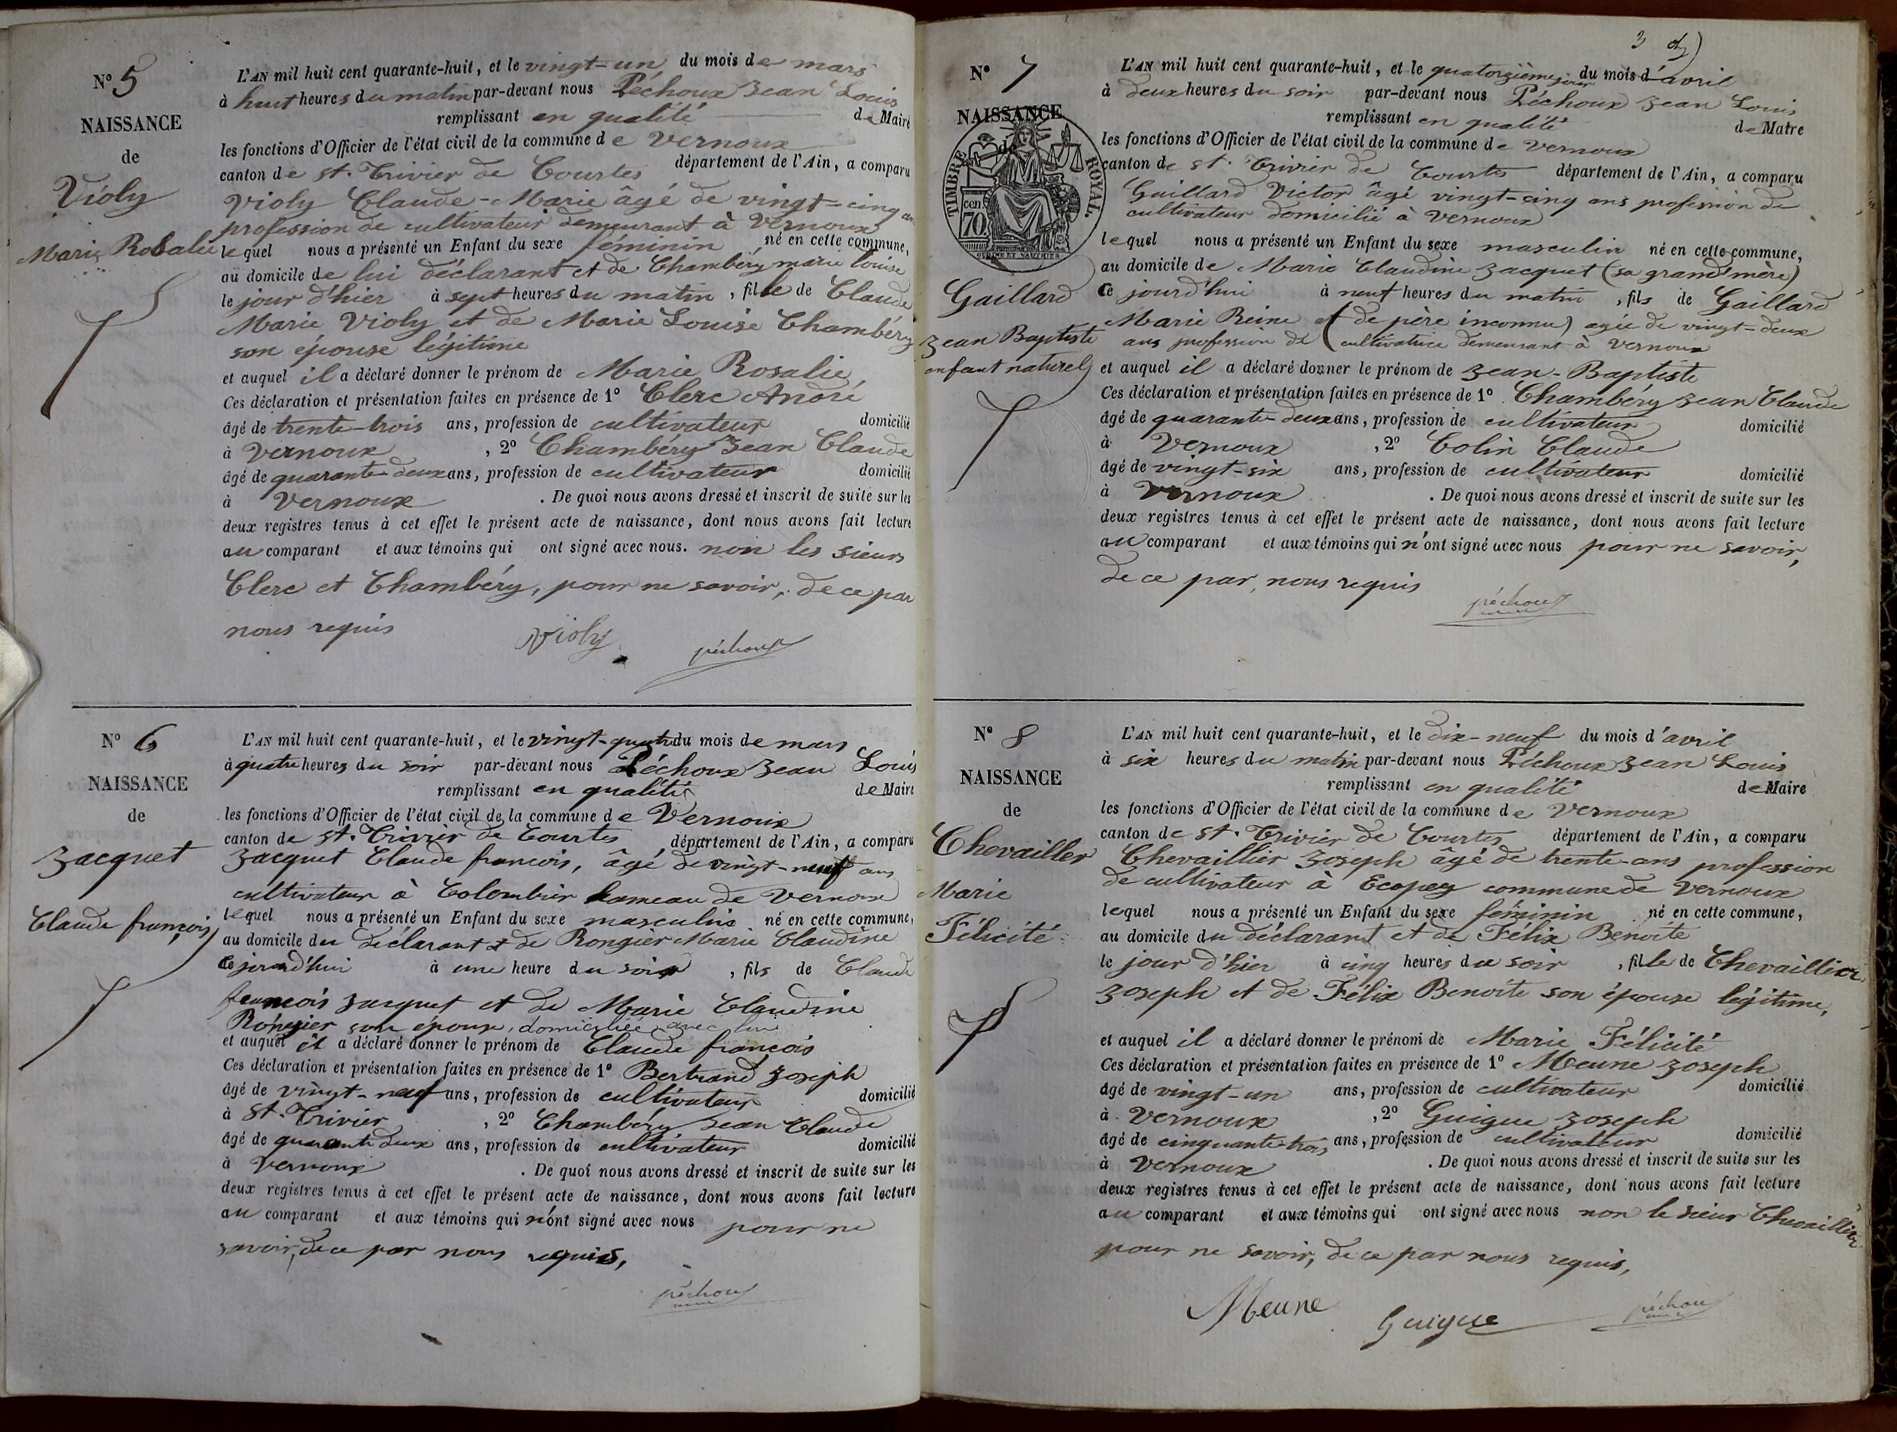 N° 5
NAISSANCE
de
Violy
Marie Rosalie
L'AN mil huit cent quarante-huit, et le vingt-un du mois de mars
à huit heures du matin par-devant nous Péchoux Jean Louis
remplissant en qualité de Maire
les fonctions d'Officier de l'état civil de la commune de Vernoux
canton de St. Trivier de Courtes département de l'Ain, a comparu
Violy Claude-Marie âgé de vingt-cinq ans
profession de cultivateur demeurant à Vernoux
lequel nous a présenté un Enfant du sexe féminin né en cette commune,
au domicile de lui déclarant et de Chambéry marie louise
le jour d'hier à sept heures du matin, fille de Claude
Marie Violy et de Marie Louise Chambéry
son épouse légitime
et auquel il a déclaré donner le prénom de Marie Rosalie
Ces déclaration et présentation faites en présence de 1° Clerc André
âgé de trente-trois ans, profession de cultivateur domicilié
à Vernoux, 2° Chambéry Jean Claude
âgé de quarante-deux ans, profession de cultivateur domicilié
à Vernoux. De quoi nous avons dressé et inscrit de suite sur les
deux registres tenus à cet effet le présent acte de naissance, dont nous avons fait lecture
au comparant et aux témoins qui ont signé avec nous. non les sieurs
Clerc et Chambéry, pour ne savoir, de ce par
nous requis
Violy péchoux
N° 6
NAISSANCE
de
Jacquet
Claude françois
L'AN mil huit cent quarante-huit, et le vingt-quatre du mois de mars
à quatre heures du soir par-devant nous Péchoux Jean Louis
remplissant en qualité de Maire
les fonctions d'Officier de l'état civil de la commune de Vernoux
canton de St. Trivier de Courtes département de l'Ain, a comparu
Jacquet Claude françois, âgé de vingt-neuf ans
cultivateur à Colombier hameau de Vernoux
lequel nous a présenté un Enfant du sexe masculin né en cette commune,
au domicile du déclarant & de Rongier Marie Claudine
ce jourd'hui à une heure du soir, fils de Claude
françois Jacquet et de Marie Claudine
Rongier son épouse, domiciliée avec lui
et auquel il a déclaré donner le prénom de Claude françois
Ces déclaration et présentation faites en présence de 1° Bertrand Joseph
âgé de vingt-neuf ans, profession de cultivateur domicilié
à St. Trivier, 2° Chambéry Jean Claude
âgé de quarante deux ans, profession de cultivateur domicilié
à Vernoux. De quoi nous avons dressé et inscrit de suite sur les
deux registres tenus à cet effet le présent acte de naissance, dont nous avons fait lecture
au comparant et aux témoins qui n'ont signé avec nous pour ne
savoir, de ce par nous requis,
péchoux
3
N° 7
NAISSANCE
de
TIMBRE ROYAL
70 cen
Gaillard
Jean Baptiste
enfant naturel
L'AN mil huit cent quarante-huit, et le quatorzième jour du mois d'avril
à deux heures du soir par-devant nous Péchoux Jean Louis
remplissant en qualité de Maire
les fonctions d'Officier de l'état civil de la commune de Vernoux
canton de St. Trivier de Courtes département de l'Ain, a comparu
Gaillard Victor âgé vingt-cinq ans profession de
cultivateur domicilié à Vernoux
lequel nous a présenté un Enfant du sexe masculin né en cette commune,
au domicile de Marie Claudine Jacquet (sa grand'mère)
ce jourd'hui à neuf heures du matin, fils de Gaillard
Marie Reine et de père inconnu) agée de vingt-deux
ans profession de (cultivatrice demeurant à Vernoux
et auquel il a déclaré donner le prénom de Jean-Baptiste
Ces déclaration et présentation faites en présence de 1° Chambéry Jean Claude
âgé de quarante-deux ans, profession de cultivateur domicilié
à Vernoux, 2° Colin Claude
âgé de vingt-six ans, profession de cultivateur domicilié
à Vernoux. De quoi nous avons dressé et inscrit de suite sur les
deux registres tenus à cet effet le présent acte de naissance, dont nous avons fait lecture
au comparant et aux témoins qui n'ont signé avec nous pour ne savoir,
de ce par nous requis
péchoux
N° 8
NAISSANCE
de
Chevailler
Marie
Félicité
L'AN mil huit cent quarante-huit, et le dix-neuf du mois d'avril
à six heures du matin par-devant nous Péchoux Jean Louis
remplissant en qualité de Maire
les fonctions d'Officier de l'état civil de la commune de Vernoux
canton de St. Trivier de Courtes département de l'Ain, a comparu
Chevaillier Joseph âgé de trente-ans profession
de cultivateur à Ecopey commune de Vernoux
lequel nous a présenté un Enfant du sexe féminin né en cette commune,
au domicile du déclarant et de Félix Benoite
le jour d'hier à cinq heures du soir, fille de Chevaillier
Joseph et de Félix Benoite son épouse légitime,
et auquel il a déclaré donner le prénom de Marie Félicité
Ces déclaration et présentation faites en présence de 1° Meune Joseph
âgé de vingt-un ans, profession de cultivateur domicilié
à Vernoux, 2° Guigue Joseph
âgé de cinquante-trois ans, profession de cultivateur domicilié
à Vernoux. De quoi nous avons dressé et inscrit de suite sur les
deux registres tenus à cet effet le présent acte de naissance, dont nous avons fait lecture
au comparant et aux témoins qui ont signé avec nous non le sieur Chevaillier
pour ne savoir, de ce par nous requis,
Meune Guigue péchoux